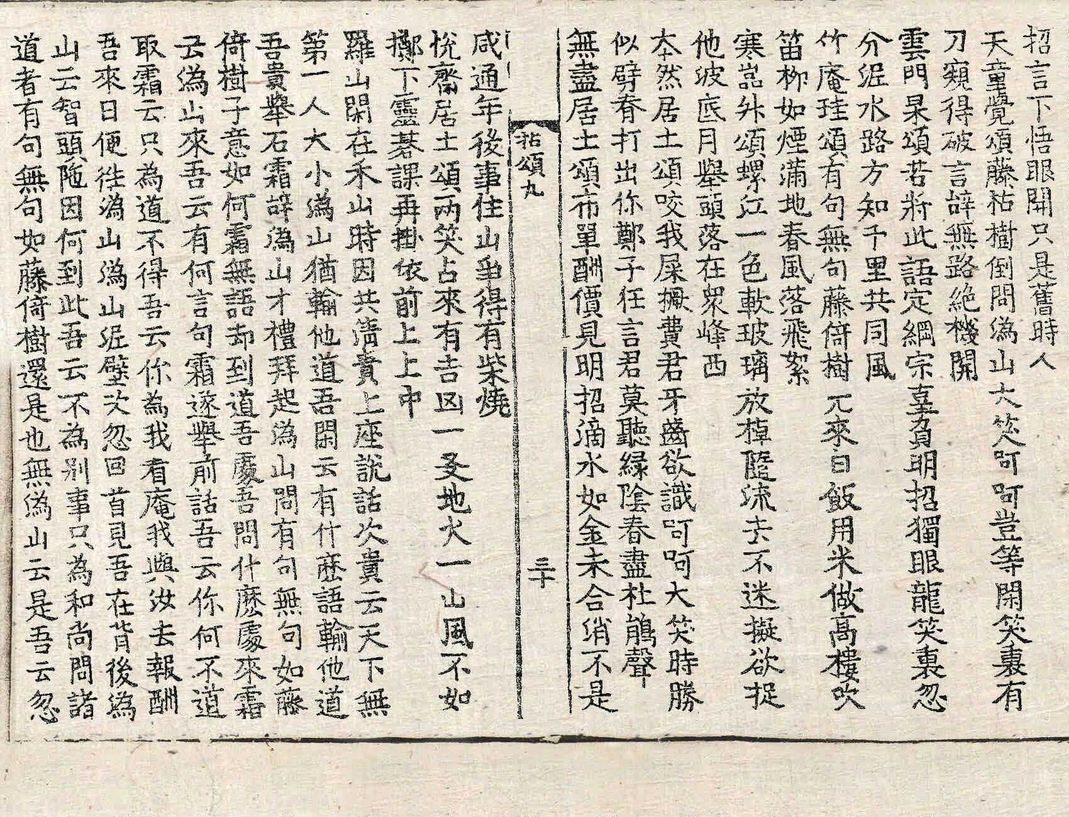 招言下悟眼開只是舊時人
天童覺頌藤枯樹倒問溈山大笑呵呵豈等閑笑裏有
刀窺得破言辞無路絶機關
雲門杲頌若將此語定綱宗辜負明招獨眼龍笑裏忽
分泥水路方知千里共同風
竹庵珪頌有句無句藤倚樹兀來白飯用米做高樓吹
笛柳如煙滿地春風落飛絮
寒嵓升頌螺江一色軟玻瓈放棹隨流去不迷擬欲捉
他波底月舉頭落在眾峰西
本然居士頌咬我屎橛費君牙齒欲識呵呵大笑時勝
似劈脊打出你鄭子任言君莫聽緑陰春盡杜鵑聲
無盡居士頌布單酬價見明招滴水如金未合消不是
拈頌九
三十
咸通年後事住山爭得有柴燒
悅齋居士頌两笑占來有吉凶一爻地火一山風不如
擲下靈棊課再掛依前上上中
羅山閑在禾山時因共清貴上座說話次貴云天下無
第一人大小溈山猶輸他道吾閑云有什麽語輸他道
吾貴舉石霜辞溈山才禮拜起溈山問有句無句如藤
倚樹子意如何霜無語却到道吾處吾問什麽處來霜
云溈山來吾云有何言句霜遂舉前話吾云你何不道
取霜云只為道不得吾云你為我看庵我與汝去報酬
吾來日便徃溈山溈山泥壁次忽回首見吾在背後溈
山云智頭陁因何到此吾云不為別事只為和尚問諸
道者有句無句如藤倚樹還是也無溈山云是吾云忽